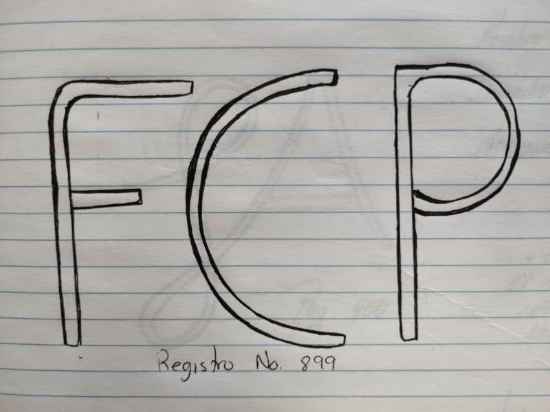 FCP
Registro No. 899